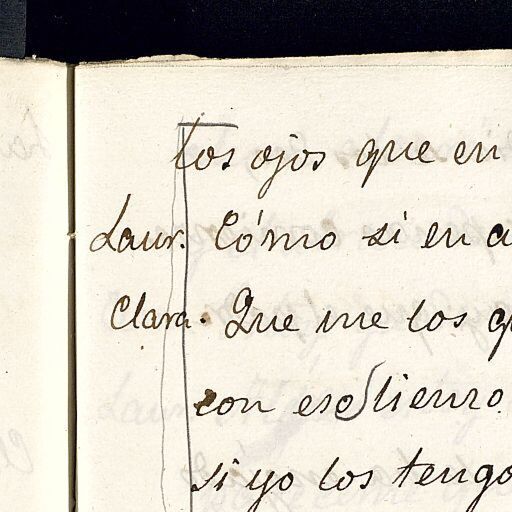 los ojos que en
Laur. Cómo si en a
Clara. Que me los q
con ese lienzo
si yo los tengo